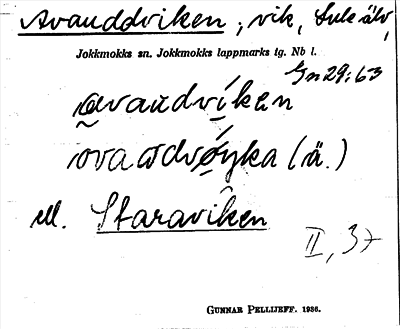 Avauddviken, vik, Lule älv,
Jokkmokks sn. Jokkmokks lappmarks tg. Nb l.
Gn 29:63
avaudvíken
ell. Staraviken
II, 37
GUNNAR PELLIJEFF. 1936.